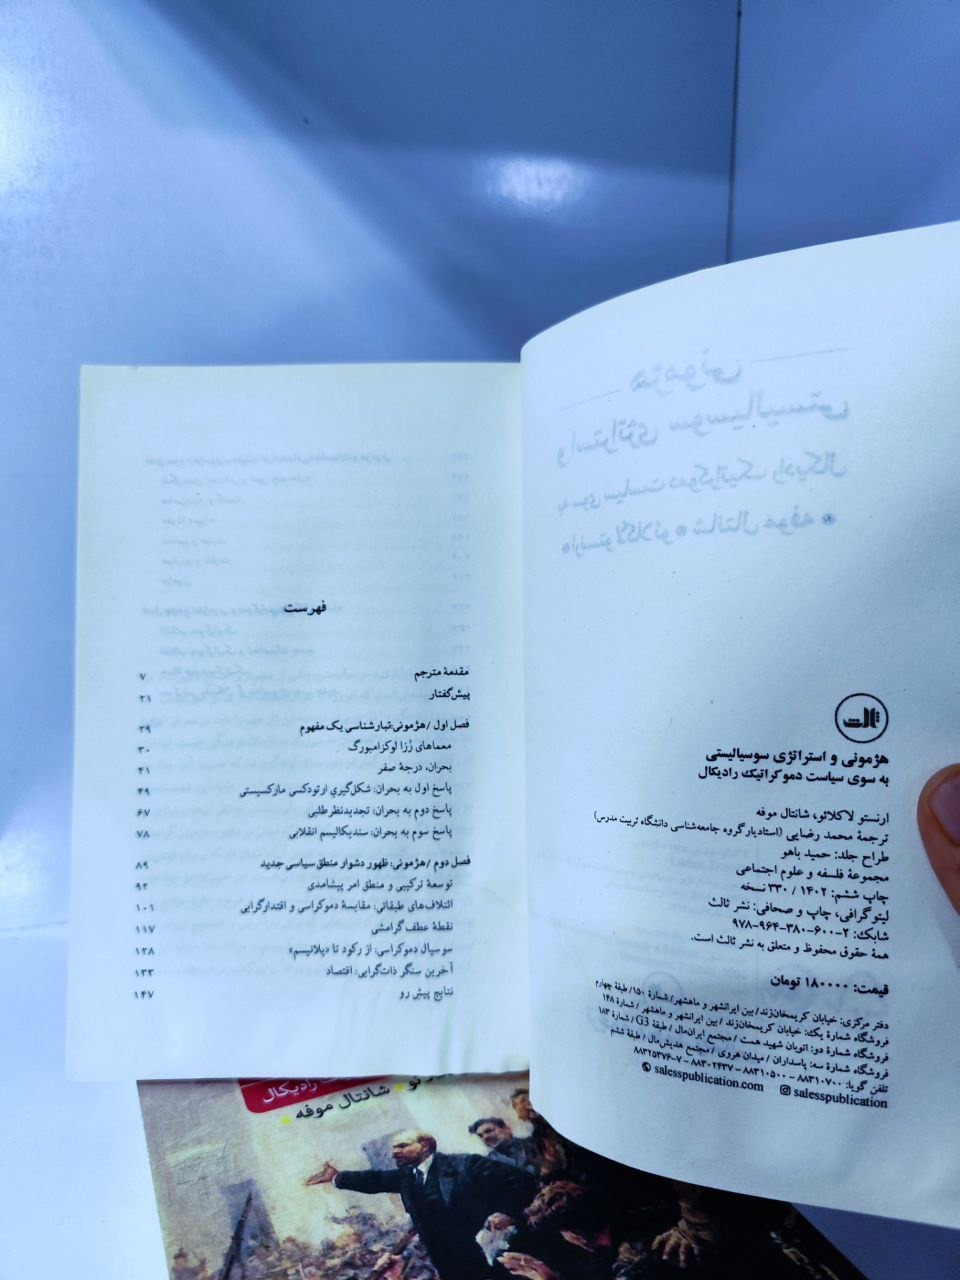 ثالث
هژمونی و استراتژی سوسیالیستی
به سوی سیاست دموکراتیک رادیکال
ارنستو لاکلائو، شانتال موفه
ترجمهٔ محمد رضایی (استادیار گروه جامعه‌شناسی دانشگاه تربیت مدرس)
طراح جلد: حمید باهو
مجموعهٔ فلسفه و علوم اجتماعی
چاپ ششم: ۱۴۰۲ / ۳۳۰ نسخه
لیتوگرافی، چاپ و صحافی: نشر ثالث
شابک: ۲-۶۰۰-۳۸۰-۹۶۴-۹۷۸
همهٔ حقوق محفوظ و متعلق به نشر ثالث است.
قیمت: ۱۸۰۰۰۰ تومان
دفتر مرکزی: خیابان کریمخان‌زند/ بین ایرانشهر و ماهشهر/ شمارهٔ ۱۵۰/ طبقهٔ چهارم
فروشگاه شمارهٔ یک: خیابان کریمخان‌زند / بین ایرانشهر و ماهشهر / شمارهٔ ۱۴۸
فروشگاه شمارهٔ دو: اتوبان شهید همت / مجتمع ایران‌مال / طبقهٔ G3 / شمارهٔ ۱۸۳
فروشگاه شمارهٔ سه: پاسداران / میدان هروی / مجتمع هدیش‌مال / طبقهٔ ششم
تلفن گویا: ۸۸۳۱۰۷۰۰ - ۸۸۳۱۰۵۰۰ - ۸۸۳۰۲۴۳۷ - ۷-۸۸۳۲۵۳۷۶
salesspublication.com salesspublication
فهرست
مقدمهٔ مترجم ۷
پیش‌گفتار ۲۱
فصل اول /هژمونی:تبارشناسی یک مفهوم ۲۹
معماهای رُزا لوکزامبورگ ۳۰
بحران، درجهٔ صفر ۴۱
پاسخ اول به بحران: شکل‌گیری ارتودکسی مارکسیستی ۴۹
پاسخ دوم به بحران: تجدیدنظرطلبی ۶۷
پاسخ سوم به بحران: سندیکالیسم انقلابی ۷۸
فصل دوم /هژمونی: ظهور دشوار منطق سیاسی جدید ۸۹
توسعهٔ ترکیبی و منطق امر پیشامدی ۹۲
ائتلاف‌های طبقاتی: مقایسهٔ دموکراسی و اقتدارگرایی ۱۰۱
نقطهٔ عطف گرامشی ۱۱۷
سوسیال دموکراسی: از رکود تا «پلانیسم» ۱۲۸
آخرین سنگر ذات‌گرایی: اقتصاد ۱۳۳
نتایج پیشِ رو ۱۴۷
رادیکال
شانتال موفه